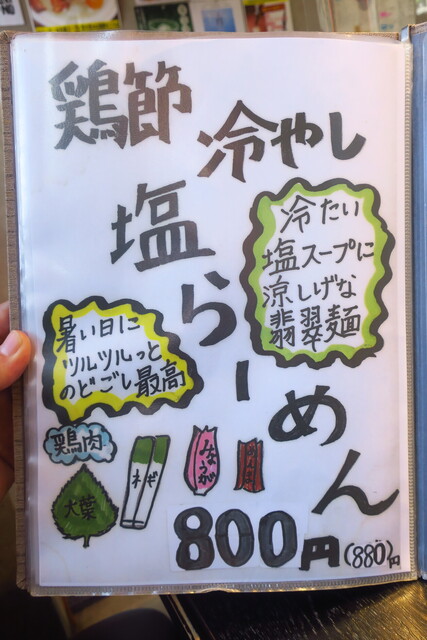 鶏節
冷やし
塩らーめん
冷たい
塩スープに
涼しげな
翡翠麺
暑い日に
ツルツルっと
のどごし最高
鶏肉
大葉
ネギ
みょうが
800円(880)円